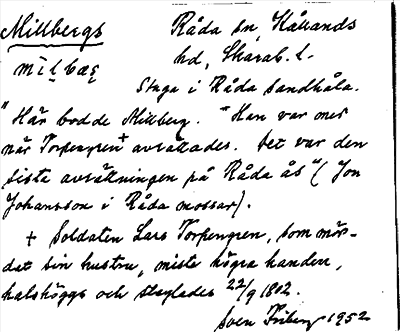 Millbergs
Råda sn, Kållands
hd, Skarab. l.
mìlbæȩ
Stuga i Råda sandhåla.
"Här bodde Millberg. "Han var med
när Torpengren + avrättades. Det var den
sista avrättningen på Råda ås" (Jon
Johansson i Råda mossar).
+ Soldaten Lars Torpengren, som mör-
dat sin hustru, miste högra handen,
halshöggs och steglades 22/9 1802.
Sven Friberg 1952